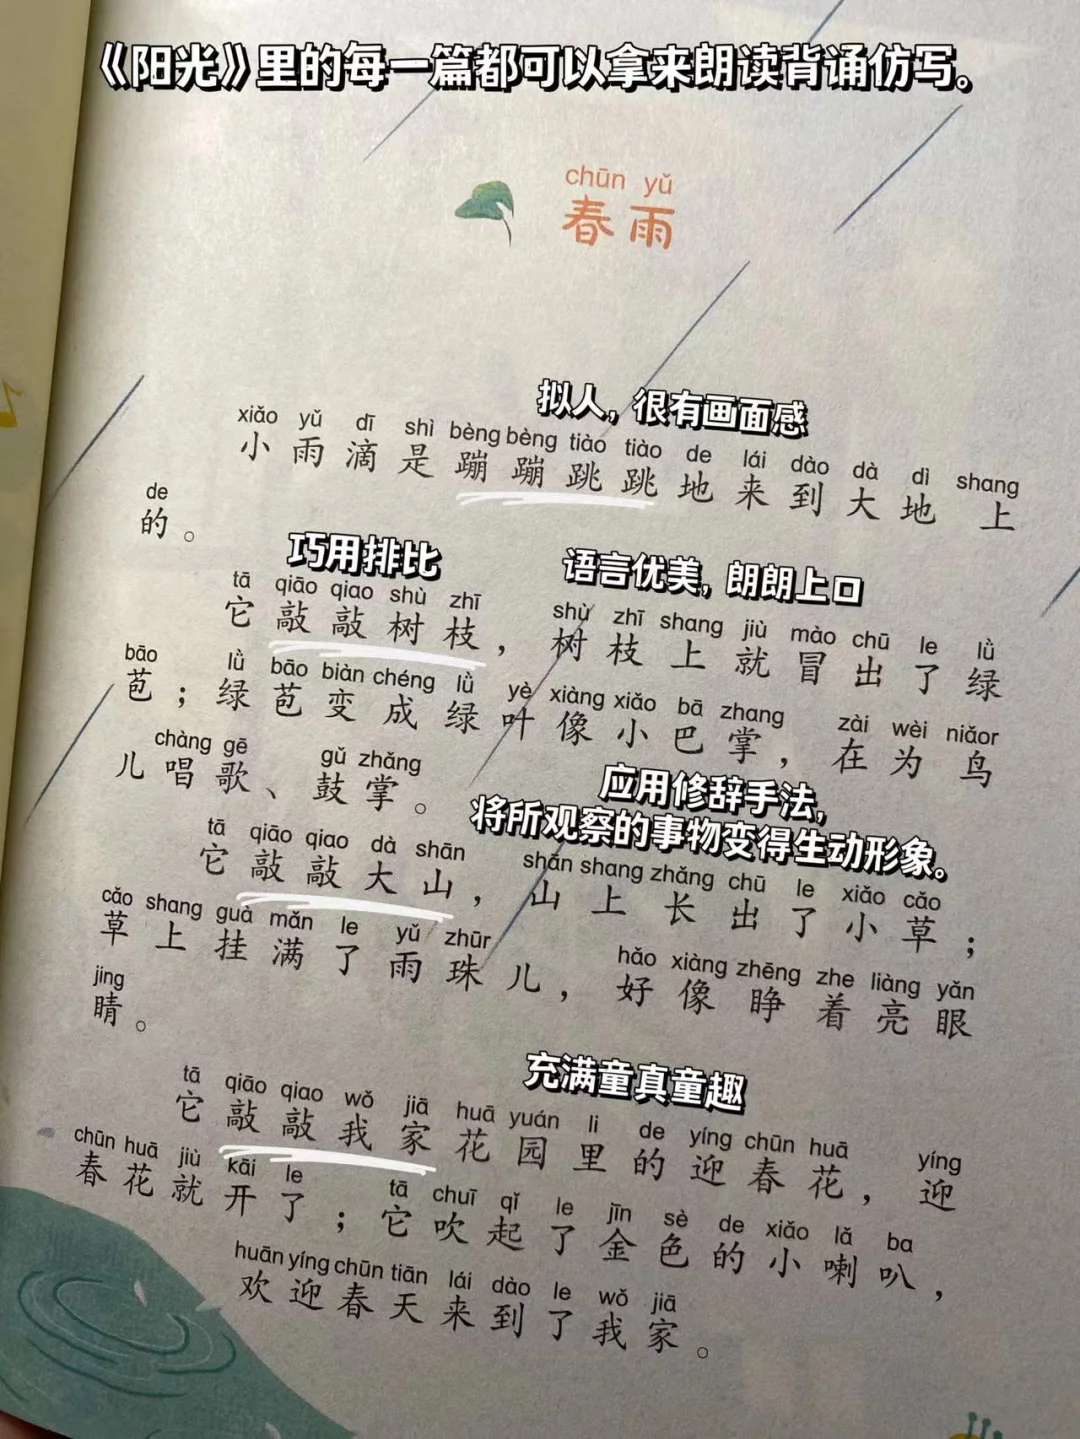 《阳光》里的每一篇都可以拿来朗读背诵仿写。
chūn yǔ
春雨
拟人，很有画面感
xiǎo yǔ dī shì bèng bèng tiào tiào de lái dào dà dì shang
小雨滴是蹦蹦跳跳地来到大地上
de
的。
巧用排比
语言优美，朗朗上口
tā qiāo qiao shù zhī shù zhī shang jiù mào chū le lǜ
它敲敲树枝，树枝上就冒出了绿
bāo lǜ bāo biàn chéng lǜ yè xiàng xiǎo bā zhang zài wèi niǎor
苞；绿苞变成绿叶像小巴掌，在为鸟
chàng gē gǔ zhǎng
儿唱歌、鼓掌。
应用修辞手法，
将所观察的事物变得生动形象。
tā qiāo qiao dà shān shān shang zhǎng chū le xiǎo cǎo
它敲敲大山，山上长出了小草；
cǎo shang guà mǎn le yǔ zhūr hǎo xiàng zhēng zhe liàng yǎn
草上挂满了雨珠儿，好像睁着亮眼
jing
睛。
充满童真童趣
tā qiāo qiao wǒ jiā huā yuán li de yíng chūn huā yíng
它敲敲我家花园里的迎春花，迎
chūn huā jiù kāi le tā chuī qǐ le jīn sè de xiǎo lǎ ba
春花就开了；它吹起了金色的小喇叭，
huān yíng chūn tiān lái dào le wǒ jiā
欢迎春天来到了我家。